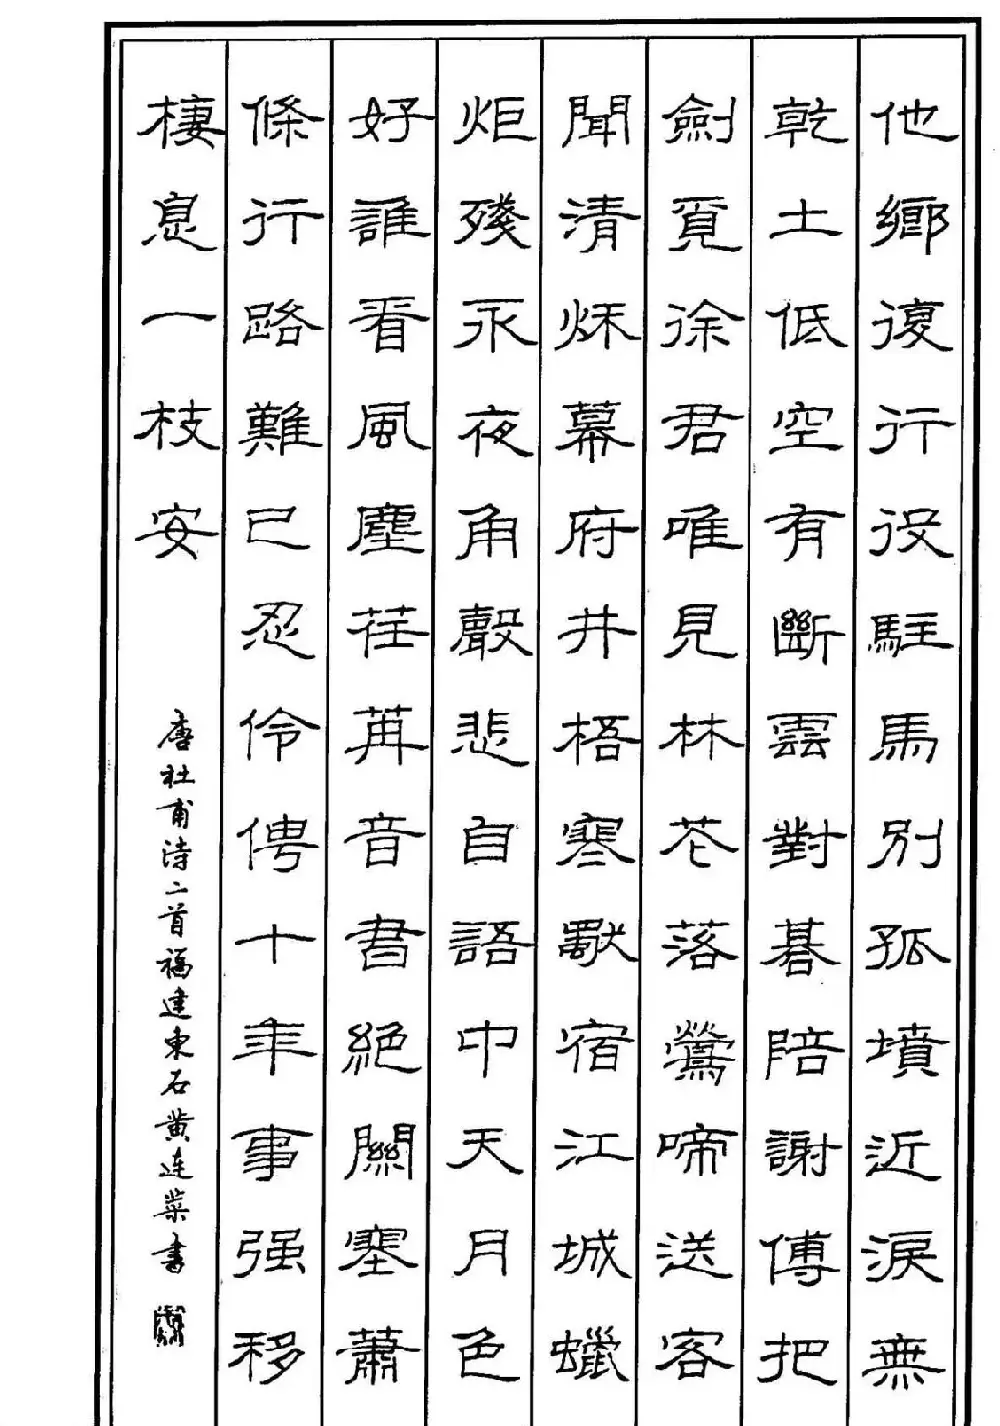 他鄉復行役駐馬別孤墳近淚無
乾土低空有斷雲對碁陪謝傅把
劍覓徐君唯見林花落鶯啼送客
聞清秌幕府井梧寒獸宿江城蠟
炬殘永夜角聲悲自語中天月色
好誰看風塵荏苒音書絕關塞蕭
條行路難已忍伶俜十年事强移
棲息一枝安
唐杜甫诗二首福建東石黄连棠書